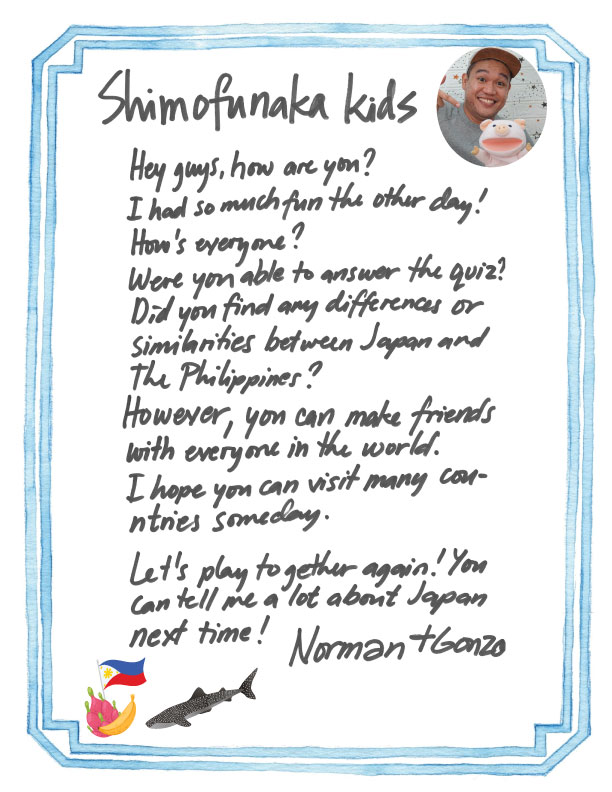 Shimofunaka kids
Hey guys, how are you?
I had so much fun the other day!
How's everyone?
Were you able to answer the quiz?
Did you find any differences or
similarities between Japan and
The Philippines?
However, you can make friends
with everyone in the world.
I hope you can visit many cou-
ntries someday.
Let's play together again! You
can tell me a lot about Japan
next time!
Norman + Gonzo